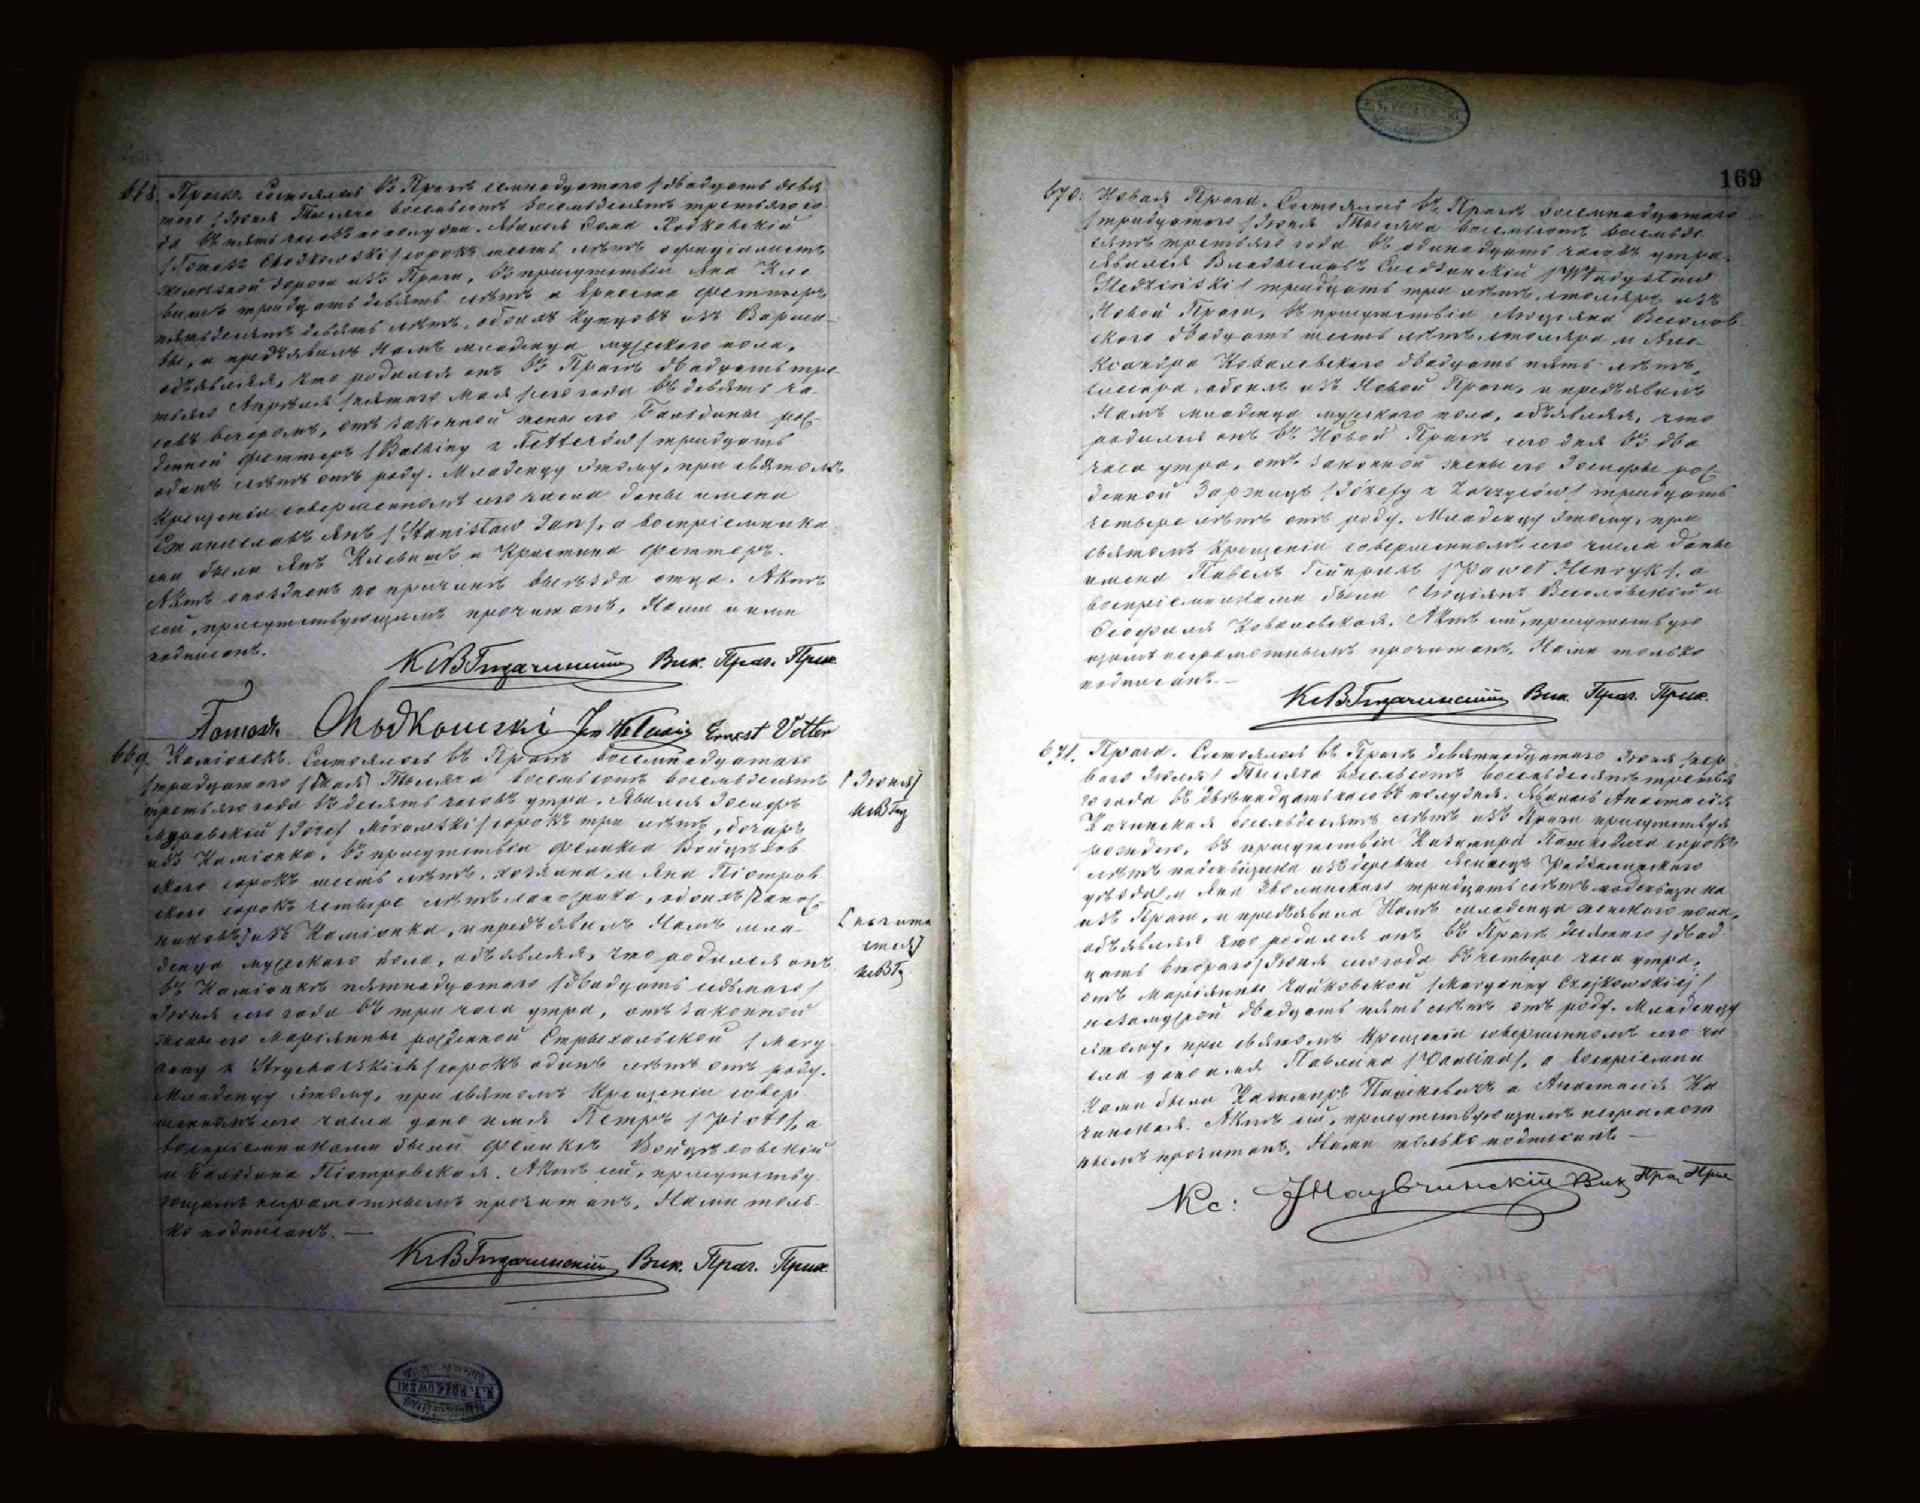 668. Прага. Состоялось въ Прагѣ семнадцатаго /двадцать девя
таго/ Іюня тысяча восемьсотъ восемьдесятъ третьяго го
да въ пять часовъ по полудни. Явился Ѳома Ходковскій
/Tomasz Chodkowski/ сорокъ шесть лѣтъ оффиціалистъ
желѣзной дороги изъ Праги, въ присутствіи Яна Кле
тридцать девять лѣтъ и Ернеста Феттеръ
пятьдесятъ девять лѣтъ, обоихъ купцовъ изъ Варша-
вы, и предъявилъ Намъ младенца мужескаго пола,
объявляя, что родился онъ въ Прагѣ двадцать тре-
тьяго Апрѣля /пятаго Мая/ сего года въ девять ча-
совъ вечеромъ, отъ законной жены его Бальбины рож-
денной Феттеръ /Balbiny z Fetterów/ тридцать
одинъ лѣтъ отъ роду. Младенцу этому, при святомъ
Крещеніи совершенномъ сего числа даны имена
Станиславъ Янъ /Stanisław Jan/, а воспріемника
ми были Янъ и Христина Феттеръ.
Актъ опозданъ по причинѣ выѣзда отца. Актъ
сей, присутствующимъ прочитанъ, Нами и ими
подписанъ.
Вик. Праг. Прих
Tomasz Chodkowski Jan Ernest Vetter
669. Каміонекъ. Состоялось въ Прагѣ восемнадцатаго
/тридцатаго/ [Мая] тысяча восемьсотъ восемьдесятъ [Іюня]
третьяго года въ десять часовъ утра. Явился Іосифъ
Муравскій /Józef Morawski/ сорокъ три лѣтъ, бочаръ
изъ Каміонка, въ присутствіи Феликса Войцѣхов
скаго сорокъ шесть лѣтъ, хозяина и Яна Піотров
скаго сорокъ четыре лѣтъ сапожника, обоихъ [сапож-
никовъ] изъ Каміонка, и предъявилъ Намъ мла-
денца мужескаго пола, объявляя, что родился онъ
въ Каміонкѣ пятнадцатаго /двадцать седьмаго/
Іюня сего года въ три часа утра, отъ законной
жены его Маріянны рожденной Стрыхальской /Mary
anny z Strychalskich/ сорокъ одинъ лѣтъ отъ роду.
Младенцу этому, при святомъ Крещеніи совер
шенномъ сего числа дано имя Петръ /Piotr/, а
воспріемниками были Феликсъ Войцѣховскій
и Бальбина Піотровская. Актъ сей, присутству
ющимъ неграмотнымъ прочитанъ, Нами толь-
ко подписанъ. —
Вик. Праг. Прих.
169
670. Новая Прага. Состоялось въ Прагѣ восемнадцатаго
/тридцатаго/ Іюня тысяча восемьсотъ восемьде
сятъ третьяго года въ одинадцать часовъ утра.
Явился Владыславъ Следзинскій /Władysław
Śledziński/ тридцать три лѣтъ, столяръ изъ
Новой Праги, въ присутствіи Люціяна Веслов
скаго двадцать шесть лѣтъ, столяра и Але-
ксандра Ковалевскаго двадцать пять лѣтъ,
слесаря, обоихъ изъ Новой Праги, и предъявилъ
Намъ младенца мужескаго пола, объявляя, что
родился онъ въ Новой Прагѣ сего дня въ два
часа утра, отъ законной жены его Іосифы рож
денной /Józefy z / тридцать
четыре лѣтъ отъ роду. Младенцу этому, при
святомъ Крещеніи совершенномъ сего числа даны
имена Павелъ Генрихъ /Paweł Henryk/, а
воспріемниками были Люціянъ Весловскій и
Ѳеофиля Ковалевская. Актъ сей, присутствую
щимъ неграмотнымъ прочитанъ, Нами только
подписанъ. —
Вик. Праг. Прих.
671. Прага. Состоялось въ Прагѣ девятнадцатаго Іюня /пер
ваго Іюля/ тысяча восемьсотъ восемьдесятъ третья
го года въ двѣнадцать часовъ полудня. Явилась Анастасія
Качинская восемьдесятъ лѣтъ изъ Праги присутствуя
родамъ, въ присутствіи Казимира Пашкевича сорокъ
лѣтъ изъ деревни Радиминскаго
уѣзда и Яна тридцать лѣтъ
изъ Праги, и предъявила Намъ младенца женскаго пола,
объявляя что родился онъ въ Прагѣ десятаго /двад
цать втораго/ Іюня сего года въ четыре часа утра,
отъ Маріянны Чайковской /Maryanny Czajkowskiej/
незамужной двадцать пять лѣтъ отъ роду. Младенцу
этому, при святомъ Крещеніи совершенномъ сего чи
сла дано имя Павлина /Paulina/, а воспріемни
ками были Казимиръ Пашкевичъ и Анастасія Ка
чинская. Актъ сей, присутствующимъ неграмот
нымъ прочитанъ, Нами только подписанъ —
Кс: Вик Праг Прих